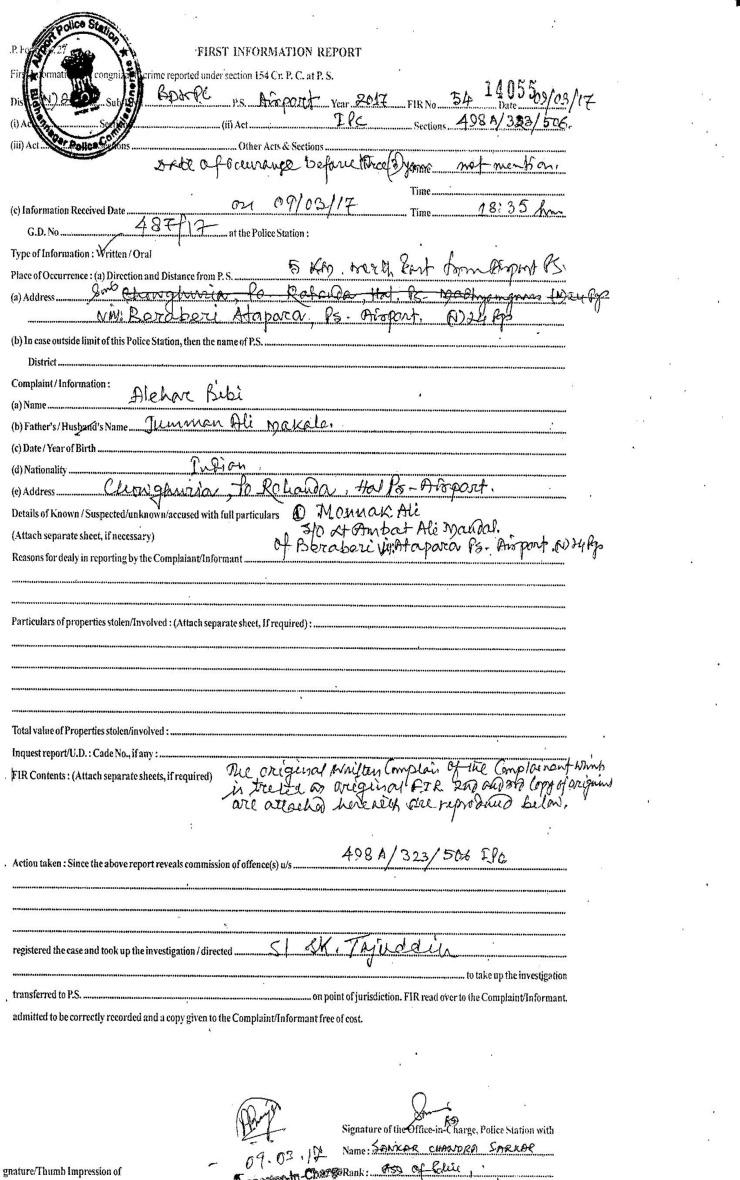 Airport Police Station
Bidhannagar Police Commissionerate
.P. Fo 27
FIRST INFORMATION REPORT
First Informati cogniz crime reported under section 154 Cr. P. C. at P. S.
14055
Dis (N) 2 Sub BDNPC P.S. Airport Year 2017 FIR No 54 Date 09/03/17
(i) Ac Sec (ii) Act IPC Sections 498A/323/506.
(iii) Act Sections Other Acts & Sections
Date of occurance before three (3) years not mention.
Time
(c) Information Received Date on 09/03/17 Time 18:35 hrs
G.D. No 487/17 at the Police Station :
Type of Information : Written / Oral
Place of Occurrence : (a) Direction and Distance from P. S. 5 KM. north East from Airport PS.
(a) Address Chowghuria, Po. Rahanda, Hat, Ps. Madhyamgram (N) 24 Pgs
Vill: Beraberi Atapara, Ps. Airport. (N) 24 Pgs
(b) In case outside limit of this Police Station, then the name of P.S.
District
Complaint / Information :
(a) Name Alehar Bibi
(b) Father's / Husband's Name Jumman Ali Makale.
(c) Date / Year of Birth
(d) Nationality Indian
(e) Address Chowghuria, Po Rahanda, Hat Ps-Airport.
Details of Known / Suspected/unknown/accused with full particulars ① Monnak Ali
(Attach separate sheet, if necessary) S/o Lt Ambat Ali Mandal.
of Beraberi Vill: Atapara Ps. Airport. (N) 24 Pgs
Reasons for dealy in reporting by the Complaint/Informant
Particulars of properties stolen/Involved : (Attach separate sheet, If required) :
Total value of Properties stolen/involved :
Inquest report/U.D. : Cade No., if any :
FIR Contents : (Attach separate sheets, if required) The original written Complain of the Complainant which
is treted as original FIR 2nd and 3rd Copy of origin
are attached herewith are reproduced below.
. Action taken : Since the above report reveals commission of offence(s) u/s 498A/323/506 IPC
registered the case and took up the investigation / directed SI SK. Tajuddin
to take up the investigation
transferred to P.S. on point of jurisdiction. FIR read over to the Complaint/Informant.
admitted to be correctly recorded and a copy given to the Complaint/Informant free of cost.
Signature of the Office-in-Charge, Police Station with
09.03.17
Name: SANKAR CHANDRA SARKAR
In-Charge Rank : ASI of Police,
gnature/Thumb Impression of